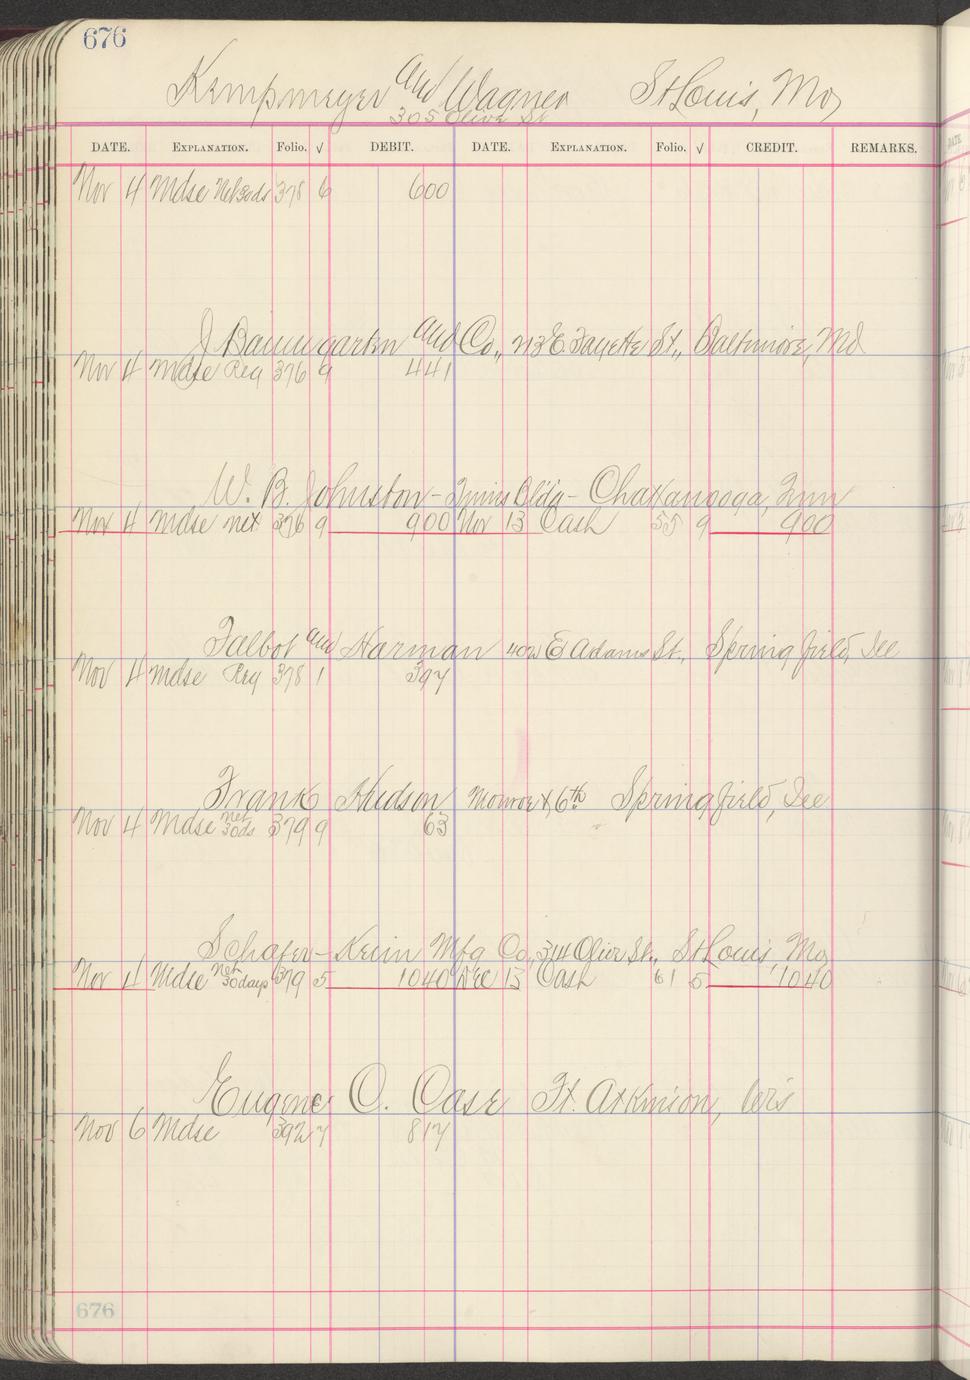 676
Kempmeyer and Wagner St Louis, Mo,
305 Olive St
DATE. EXPLANATION. Folio. √ DEBIT. DATE. EXPLANATION. Folio. √ CREDIT. REMARKS.
Nov 4 Mdse Net 30 ds 378 6 600
J Baumgarten and Co., 213 E Fayette St., Baltimore, Md
Nov 4 Mdse Reg 376 9 441
W. B. Johnston - Times Bldg - Chattanooga, Tenn
Nov 4 Mdse net 376 9 900 Nov 13 Cash 55 9 900
Talbot and Harman 402 E Adams St., Springfield, Ill
Nov 4 Mdse Reg 378 1 397
Frank Hudson Monroe & 6th Springfield, Ill
Nov 4 Mdse net 30ds 379 9 63
Schafer- Mfg Co., 314 Olive St., St Louis, Mo
Nov 4 Mdse Net 30 days 379 5 1040 Dec 13 Cash 61 5 1040
Eugene O. Case Ft. Atkinson, Wis
Nov 6 Mdse 392 7 817
676